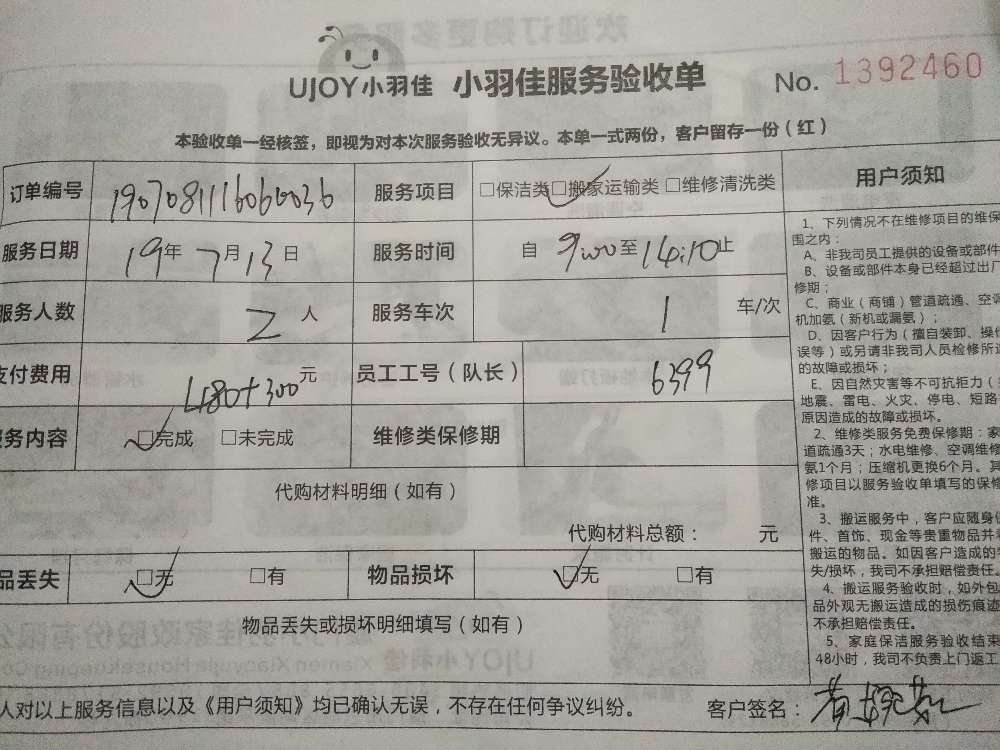 UJOY小羽佳 小羽佳服务验收单 No. 1392460
本验收单一经核签，即视为对本次服务验收无异议。本单一式两份，客户留存一份（红）
订单编号 1907081116060036 服务项目 □保洁类□搬家运输类 □维修清洗类
服务日期 19年 7月 13日 服务时间 自 9:00至 14:10止
服务人数 2 人 服务车次 1 车/次
支付费用 480+300元 员工工号（队长） 6399
务内容 □完成 □未完成 维修类保修期
代购材料明细（如有）
代购材料总额： 元
品丢失 □无 □有 物品损坏 □无 □有
物品丢失或损坏明细填写（如有）
人对以上服务信息以及《用户须知》均已确认无误，不存在任何争议纠纷。 客户签名：
用户须知
1、下列情况不在维修项目的维保
围之内：
A、非我司员工提供的设备或部件
B、设备或部件本身已经超过出厂
修期；
C、商业（商铺）管道疏通、空调
机加氨（新机或漏氨）；
D、因客户行为（擅自装卸、操作
误等）或另请非我司人员检修所造
的故障或损坏；
E、因自然灾害等不可抗拒力（
地震、雷电、火灾、停电、短路
原因造成的故障或损坏。
2、维修类服务免费保修期：家
道疏通3天；水电维修、空调维修
氨1个月；压缩机更换6个月。其
修项目以服务验收单填写的保修
准。
3、搬运服务中，客户应随身
件、首饰、现金等贵重物品并
搬运的物品。如因客户造成的
失/损坏，我司不承担赔偿责任。
4、搬运服务验收时，如外包
品外观无搬运造成的损伤痕迹
不承担赔偿责任。
5、家庭保洁服务验收结束
48小时，我司不负责上门返工